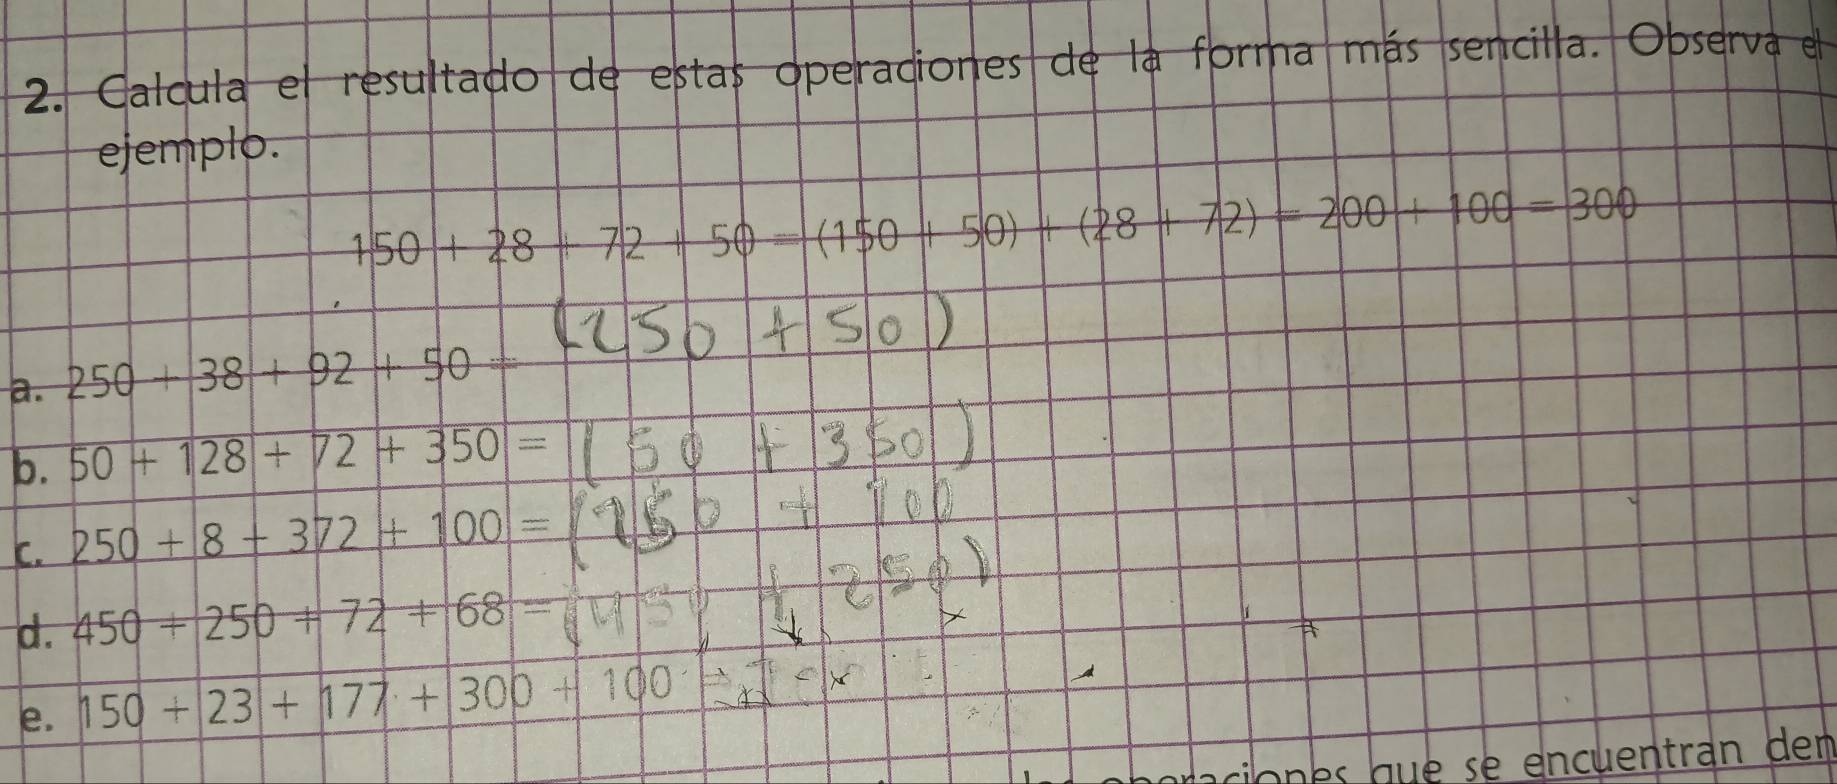 2. Calcula el resultado de estas operaciones de la forma más sencilla. Observa el
ejemplo.
150 + 28 + 72 + 50 = (150 + 50) + (28 + 72) = 200 + 100 = 300
a. 250 + 38 + 92 + 50 = (250 + 50)
b. 50 + 128 + 72 + 350 = (50 + 350)
c. 250 + 8 + 372 + 100 = (250 + 100
d. 450 + 250 + 72 + 68 = (450 + 250)
e. 150 + 23 + 177 + 300 + 100 =
que se encuentran den